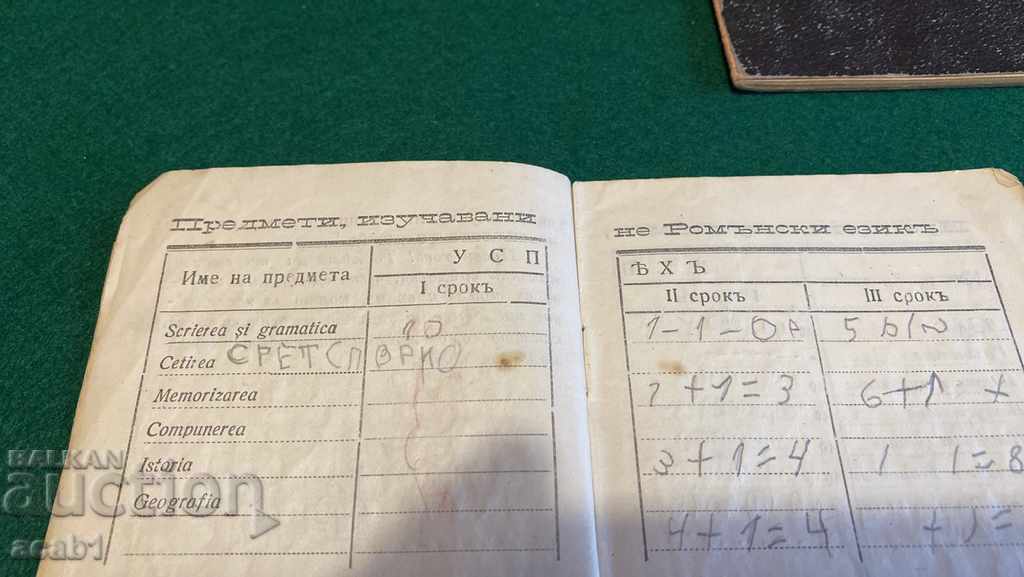 Предмети, изучавани не Ромънски езикъ
Име на предмета
У С П ѢХЪ
I срокъ
II срокъ
III срокъ
Scrierea și gramatica
10
Cetirea
Memorizarea
2+1=3
6+1
Compunerea
Istoria
3+1=4
1=8
Geografia
4+1=4
BALKAN
auction
acab1